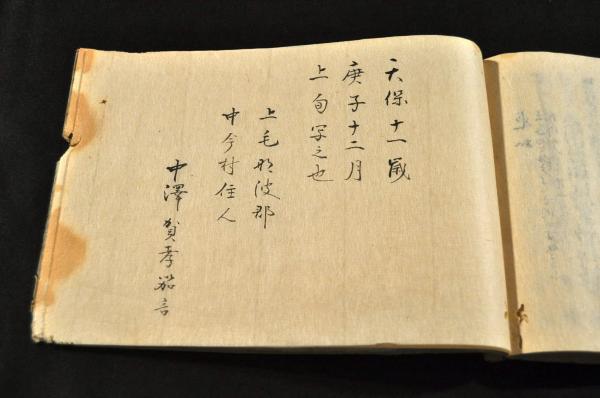 天保十一歳
庚子十二月
上旬写之也
上毛那波郡
中今村住人
中澤賀孝